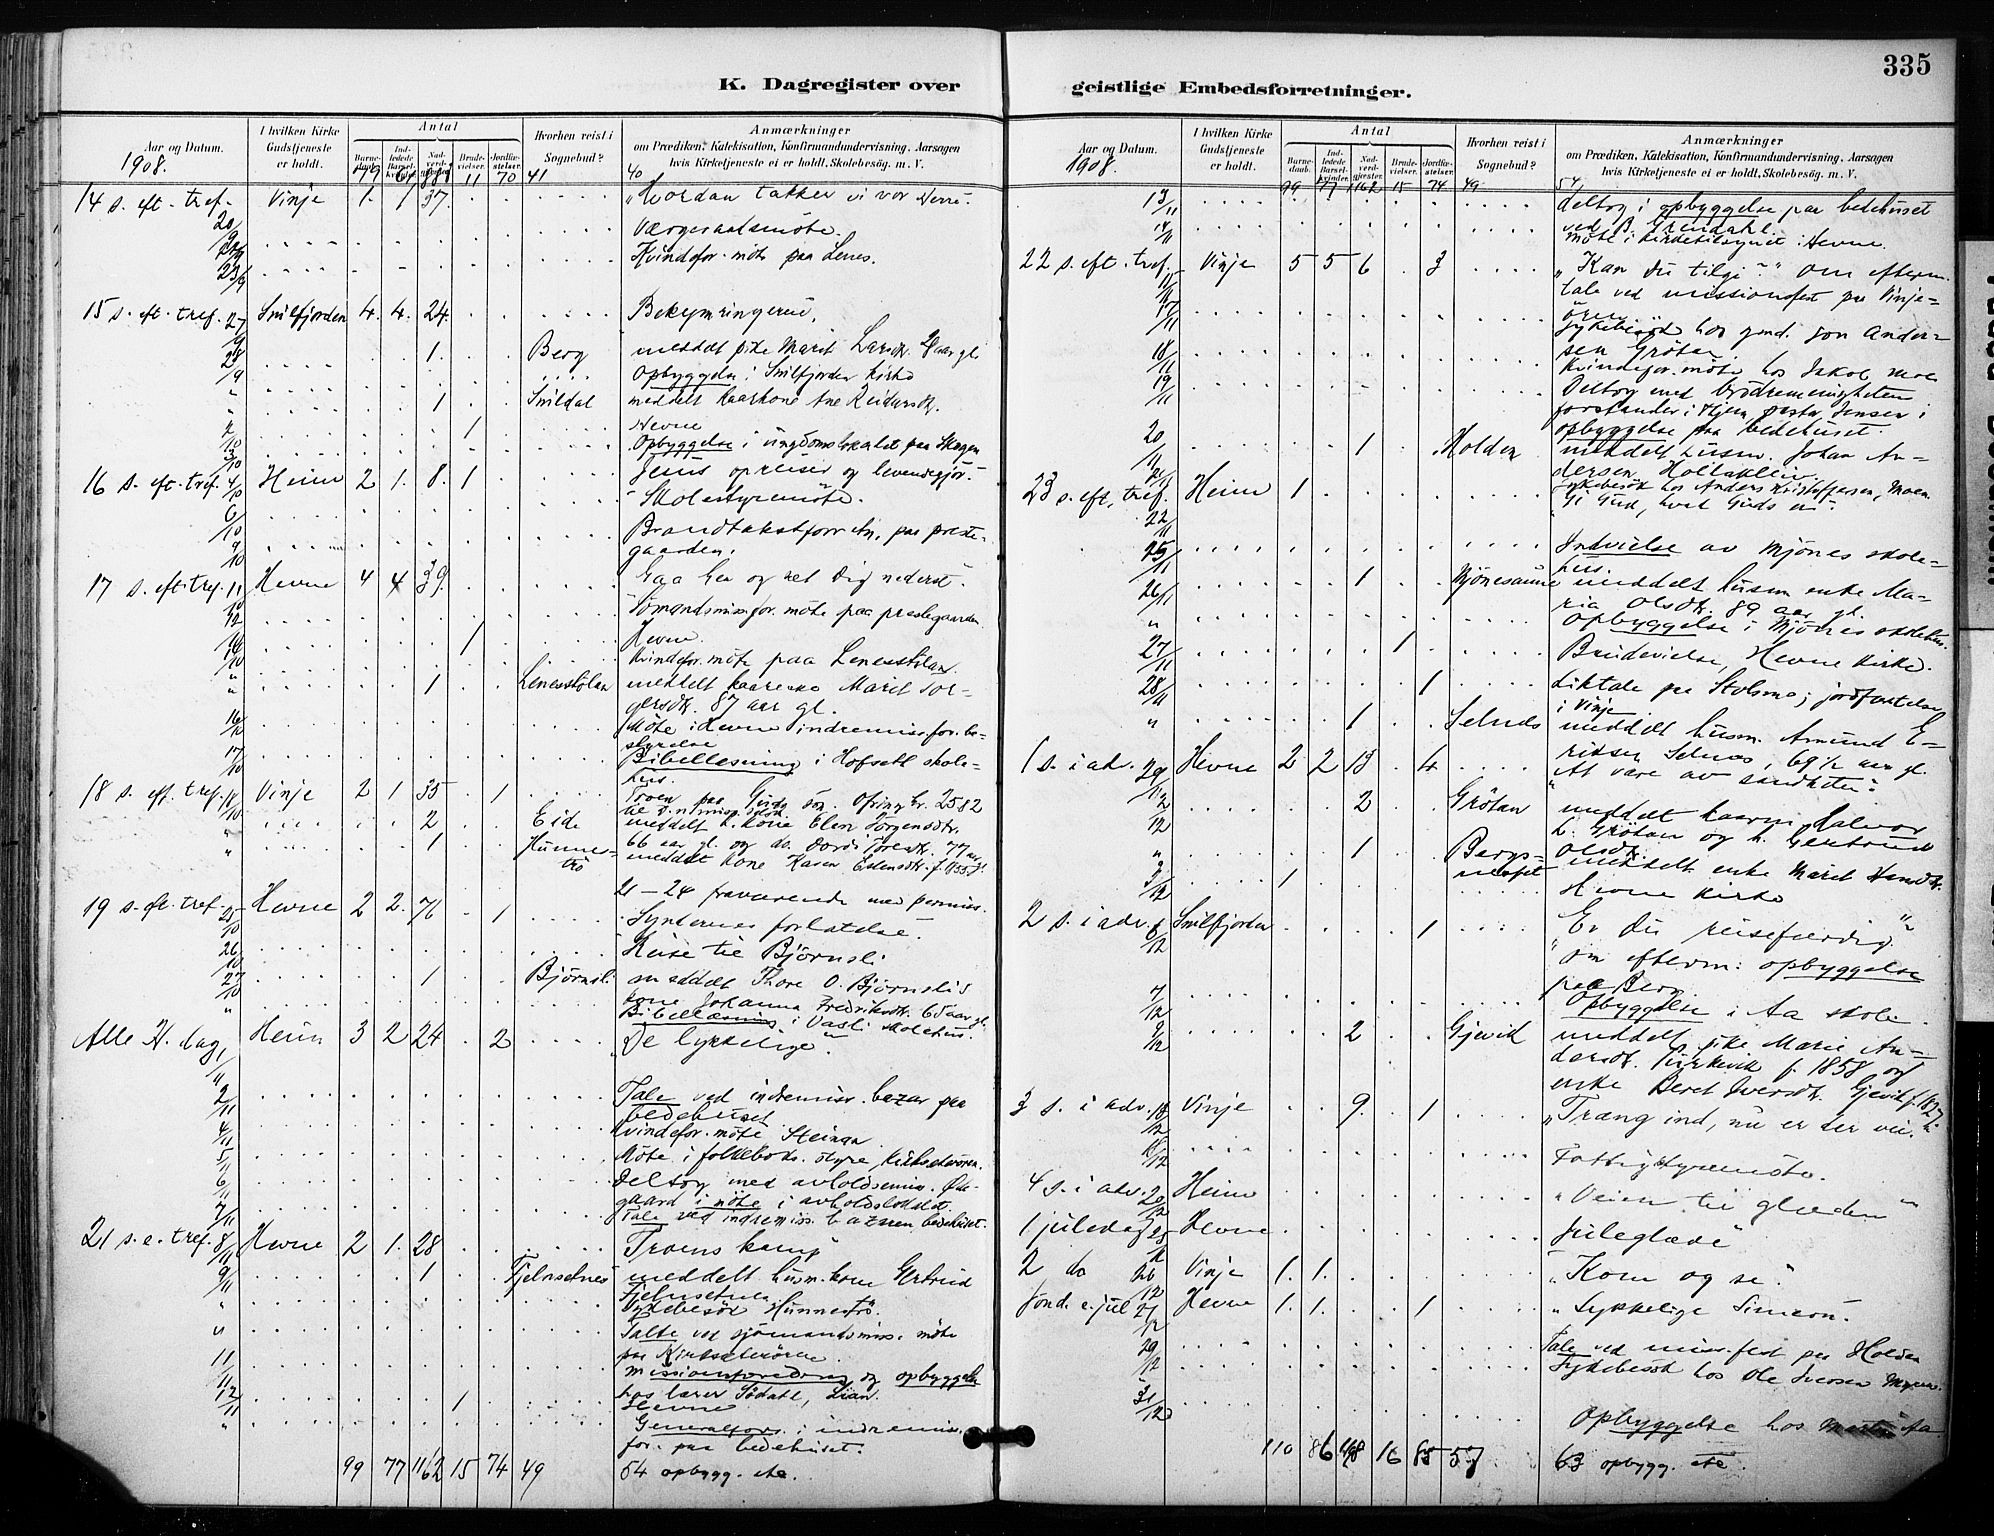 335
K. Dagregister over
geistlige Embedsforretninger.
Aar og Datum.
1908.
I hvilken Kirke Gudstjeneste er holdt.
Antal
Barnedaab.
Indledede Barselkvinder.
Nadverdgjester.
Brudevielser.
Jordfæstelser.
Hvorhen reist i Sognebud?
Anmærkninger
om Prædiken, Katekisation, Konfirmandundervisning, Aarsagen
hvis Kirketjeneste ei er holdt, Skolebesøg, m. V.
79 11 70 41 40
14 s. eft. tref. 20/9 Vinje 1 1 37 "Hvordan takker vi vor Herre"
Værgeraadsmöte.
Kvindefor. möte paa Lenes.
15 s. eft. tref. 27/9 Snilfjorden 4. 4. 24. Bekymringerne.
28/9 1. Berg meddelt pike Marit Larsdtr.
Opbyggelse i Snilfjorden kirke
" 1 Snildal meddelt kaarkone Ane Reidarsdtr.
2/10 1 Hevne
3/10 Opbyggelse i ungdomslokalet paa Skagen
16 s. eft. tref. 4/10 Heim 2 1. 8. 1 Jesus opreiser og levendegjør.
6/10 Skolestyremöte.
9/10 Brandtakstforretn. paa prestegaarden.
17 s. eft. tref. 11/10 Hevne 4 4 39. Gaa hen og sæt dig nederst
12/10 Sömandsmissfor. möte paa prestegaarden
14/10 1 Hevne.
Kvindefor. möte paa Lenesstölan
" 1 Lenesstölan meddelt kaarenke Marit Torgersdtr. 87 aar gl.
16/10 Möte i Hevne indremissfor. bestyrelse
17/10 Bibellesning i Hofsetl skolehus.
18 s. eft. tref. 18/10 Vinje 2 1 35 1 Troen paa Guds sön. Ofring kr. 25.82
" 2 Eide meddelt h. kone Elen Jörgensdtr.
66 aar gl. og do. Dordi Toresdtr. 77 aar gl.
" 1 Hunneströ meddelt kone Karen Estensdtr. f. 1835
21–24 fraværende med permiss.
19 s. eft. tref. 25/10 Hevne 2 2. 76 1 Syndernes forlatelse.
26/10 Reise til Björnsli
27/10 1 Björnsli meddelt Thore O. Björnslis
kone Johanna Fredriksdtr. 65 aar gl.
" Bibellæsning i Vasli skolehus.
Alle H. dag 1/11 Heim 3 2 24 2 "De lykkelige".
2/11 Tale ved indremiss. bazar paa bedehuset
4/11 Kvindefor. möte Steinan
5/11 Möte i folkebibl. styre, Kirksæterören.
6/11 Deltog med avholdsemiss. Ödegaard i möte i avholdslokalet.
7/11 Tale ved indremiss. bazaren bedehuset.
21 s. e. tref. 8/11 Hevne 2 1. 28 Troens kamp
9/11 1 Fjelnsetnes meddelt husm. kone Gertrud Fjelnsetnes
" Sykebesök Hunneströ.
" Talte ved sjömandsmiss. möte
paa Kirksæterören.
11/11 Missionsforedrag og opbyggelse
hos lærer Södahl, Lian.
12/11 1 Hevne
" Generalfors. i indremiss.
for. paa bedehuset.
99 77 1162 15 74 49 54 opbygg. etc.
Aar og Datum.
1908.
I hvilken Kirke Gudstjeneste er holdt.
Antal
Barnedaab.
Indledede Barselkvinder.
Nadverdgjester.
Brudevielser.
Jordfæstelser.
Hvorhen reist i Sognebud?
Anmærkninger
om Prædiken, Katekisation, Konfirmandundervisning, Aarsagen
hvis Kirketjeneste ei er holdt, Skolebesøg, m. V.
99 77 1162 15 74 49 54
13/11 deltog i opbyggelse paa bedehuset
ved B. Grendahl.
14/11 möte i kirketilsynet i Hevne.
22 s. eft. tref. 15/11 Vinje 5 5 6 3 "Kan du tilgi?" om efterm.
tale ved missionsfest paa Vinjeören.
17/11 Sykebesök hos gmd. Jon Andersen Grötan
18/11 Kvindefor. möte hos Jakob Moe
19/11 Deltog med brödremenighetens
forstander i Trhjem, pastor Jensen i
opbyggelse paa bedehuset.
20/11 1 Holden meddelt husm. Johan Andersen, Holtakleiv
21/11 Sykebesök hos Anders Kristoffersen, Moen
23 s. eft. tref. 22/11 Heim 1 "Gi Gud, hvad Guds er".
25/11 Indvielse av Mjönes skolehus.
26/11 1 Mjönesaune meddelt husm. enke Maria Olsdtr. 89 aar gl.
" Opbyggelse i Mjönes skolehus.
27/11 1 Brudevielse, Hevne kirke.
28/11 1 Liktale paa Stolsmo; jordfæstelse
i Vinje
" 1 Selnes meddelt husm. Amund Eriksen Selnes, 69½ aar gl.
1 s. i adv. 29/11 Hevne 2 2 13 4 "At være av sandheten".
2/12 2 Grötan meddelt kaarm. Halvor
L. Grötan og h. Gjertrud Olsdtr.
" 1 Bergsneset meddelt enke Marit Hansdtr.
3/12 1 Hevne kirke
2 s. i adv. 6/12 Snilfjorden 1 "Er du reisefærdig"
om efterm: opbyggelse
paa Berg
7/12 Opbyggelse i Aa skole.
9/12 2 Gjevik meddelt pike Marie Andersdtr. Kirkevik f. 1858 og
enke Beret Iversdtr. Gjevik f. 1827.
3 s. i adv. 13/12 Vinje 9. 1 "Træng ind, nu er der vei."
15/12 Fattigstyremöte.
4 s. i adv. 20/12 Heim "Veien til glæden"
1 juledag 25/12 Hevne Juleglæde
2 do 26/12 Vinje 1. 1. "Kom og se".
Sönd. e. jul 27/12 Hevne 1. 1. 1 "Lykkelige Simeon".
29/12 Tale ved miss. fest paa Holden
Sykebesök hos Ole Iversen Moen.
31/12 Opbyggelse hos Aa
110 86 16 85 57 63 opbygg. etc.